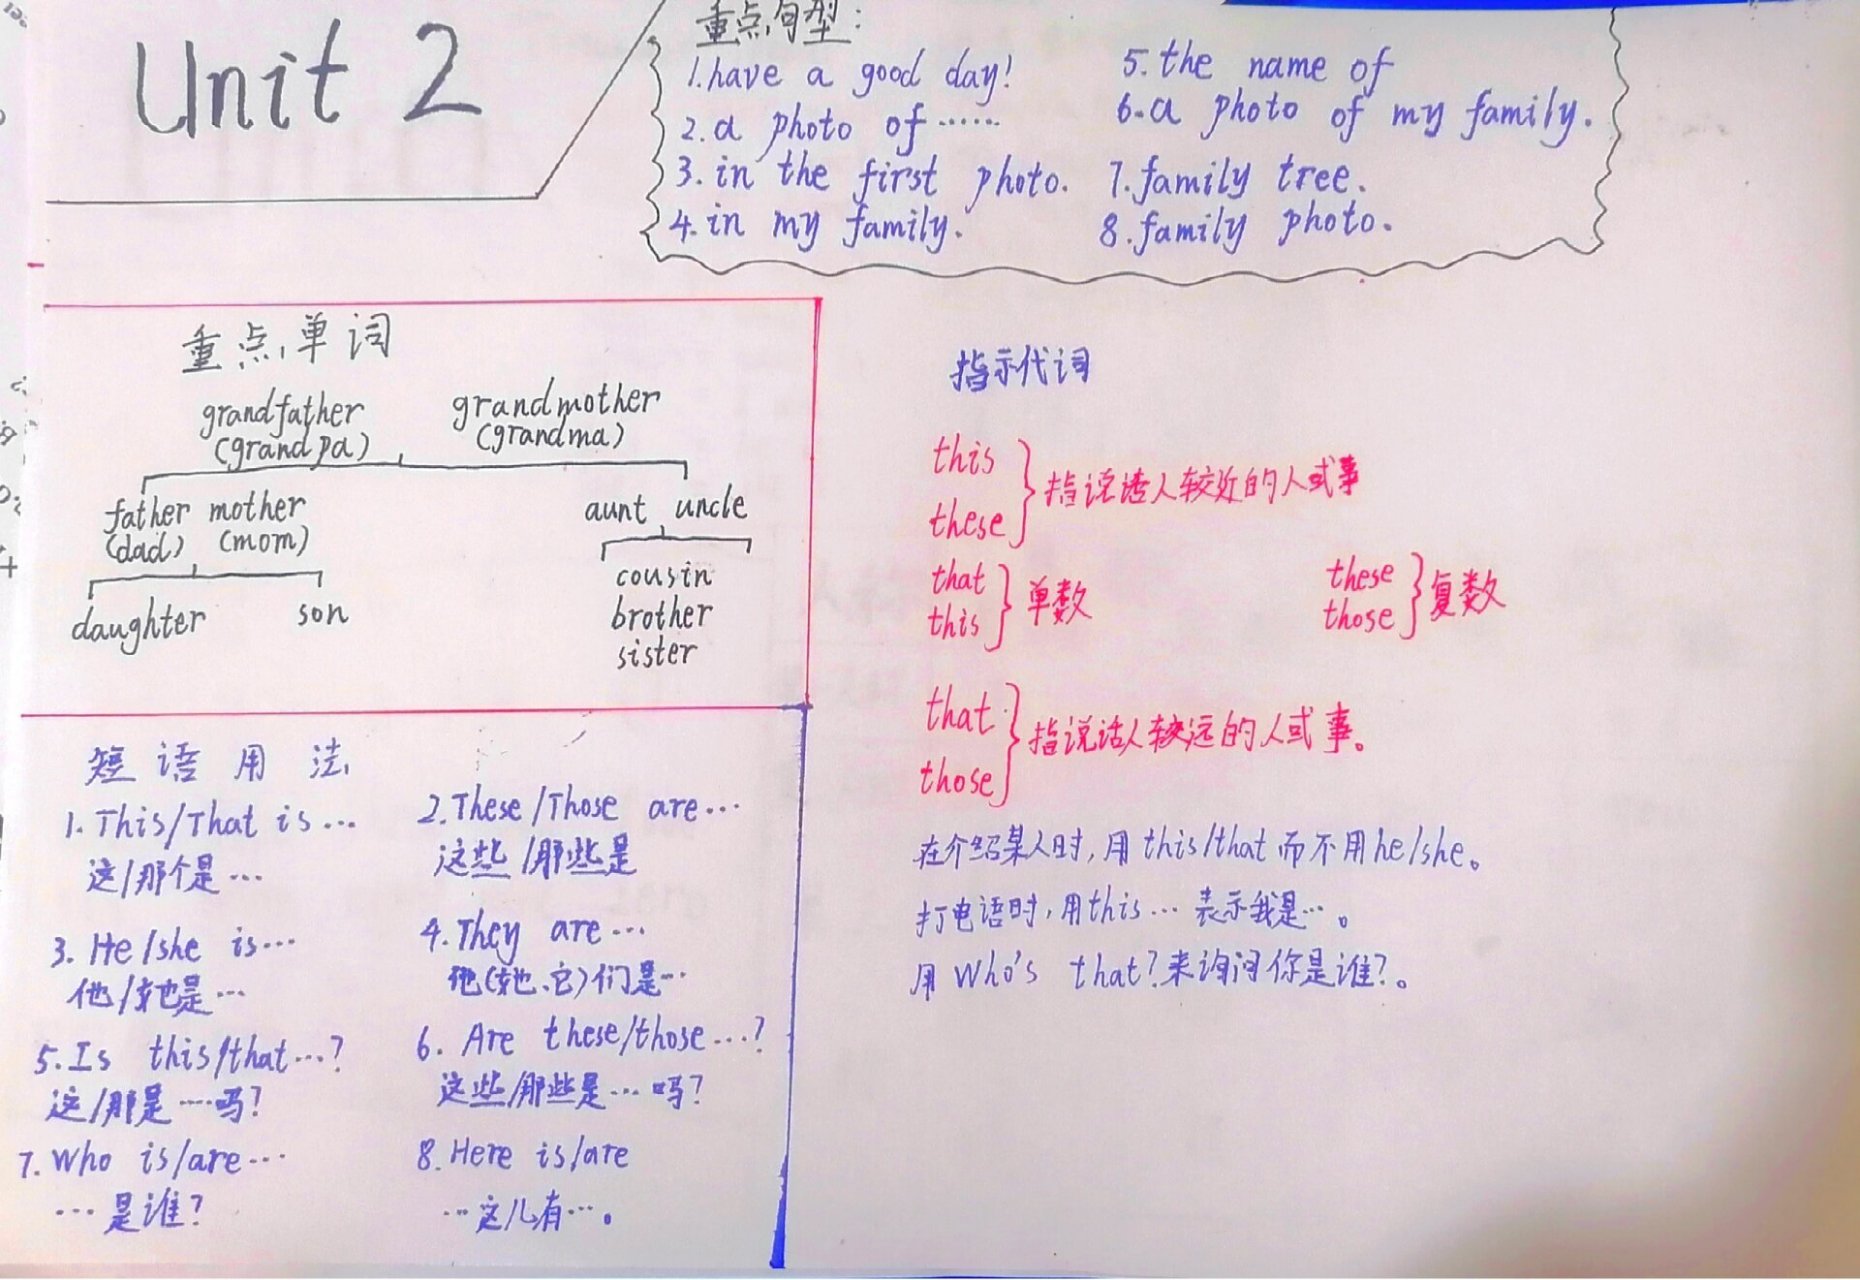 Unit 2
重点句型:
1. have a good day!
2. a photo of ……
3. in the first photo.
4. in my family.
5. the name of
6. a photo of my family.
7. family tree.
8. family photo.
重点单词
grandfather grandmother
(grandpa) (grandma)
father mother aunt uncle
(dad) (mom)
daughter son
cousin
brother
sister
短语用法
1. This/That is …
这/那个是 …
2. These/Those are …
这些/那些是
3. He/she is …
他/她是 …
4. They are …
他(她、它)们是…
5. Is this/that …?
这/那是 ……吗?
6. Are these/those …?
这些/那些是 … 吗?
7. Who is/are …
… 是谁?
8. Here is/are
… 这儿有 …。
指示代词
this
these
指说话人较近的人或事
that
this
单数
these
those
复数
that
those
指说话人较远的人或事。
在介绍某人时, 用 this/that 而不用 he/she。
打电话时, 用this … 表示我是 …。
用 Who's that? 来询问你是谁?。